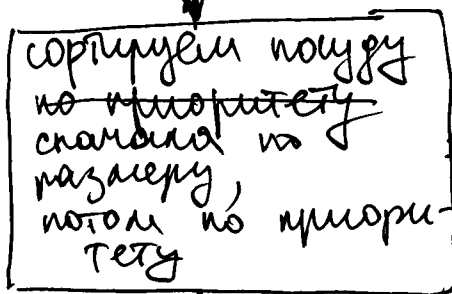 сортируем посуду
по приоритету
сначала по
размеру,
потом по приори-
тету